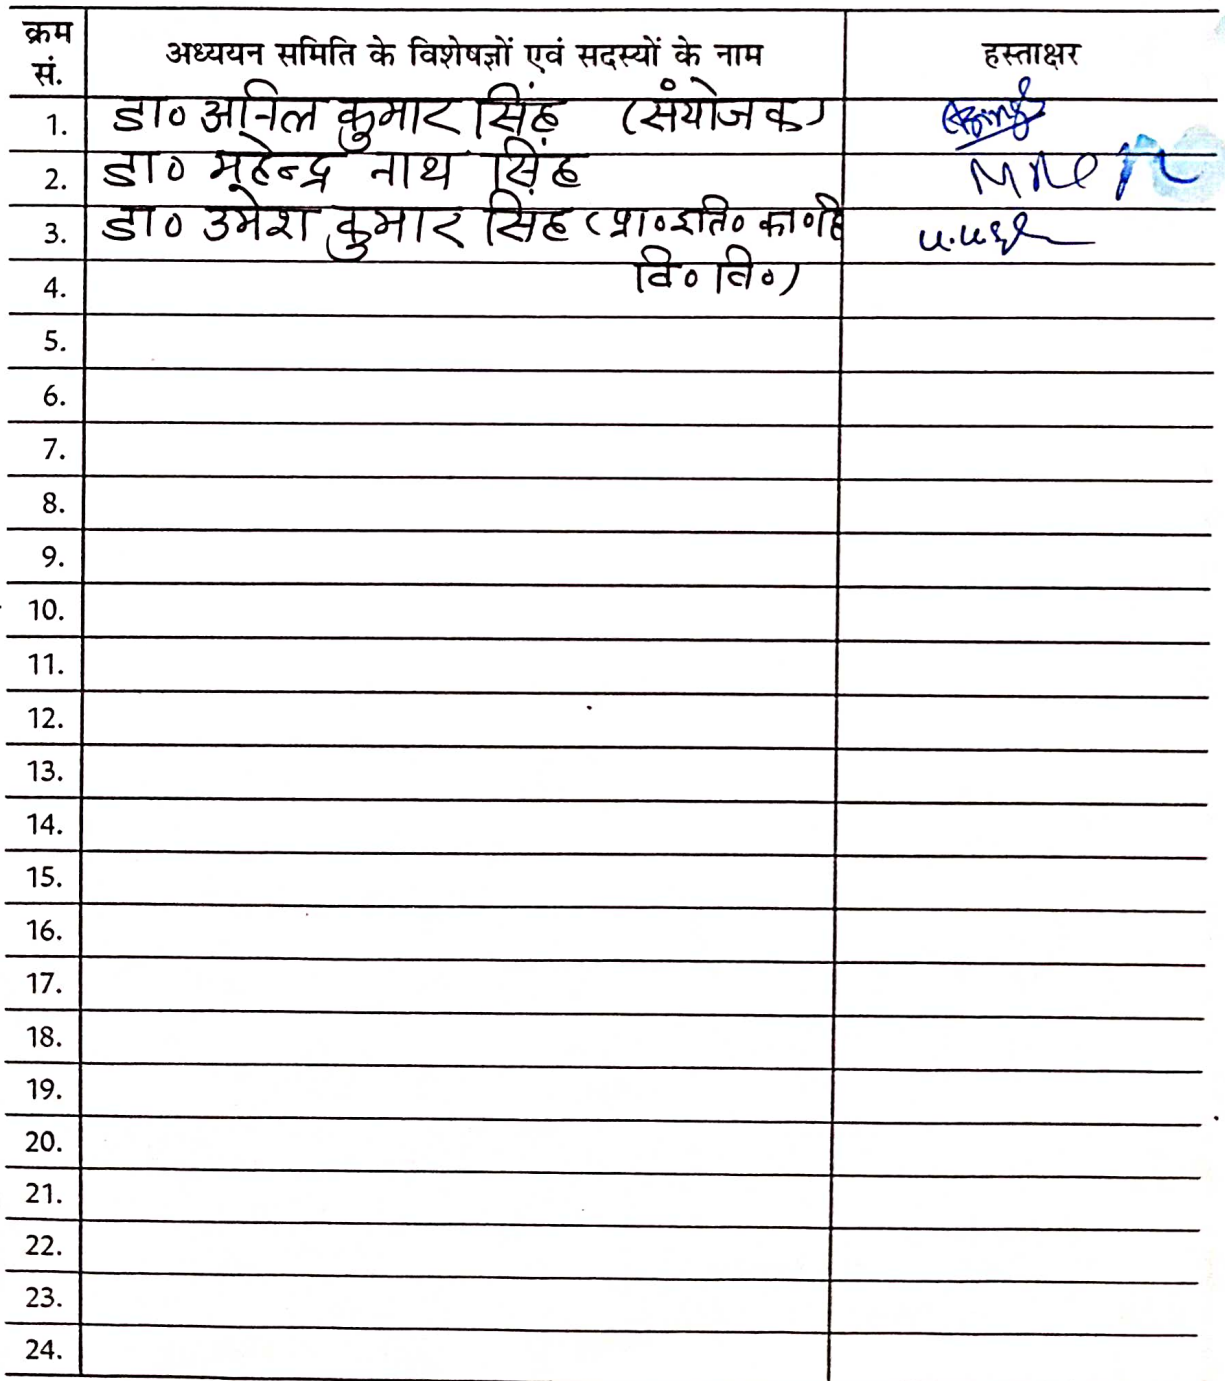 क्रम सं. अध्ययन समिति के विशेषज्ञों एवं सदस्यों के नाम हस्ताक्षर
1. डा० अनिल कुमार सिंह (संयोजक)
2. डा० महेन्द्र नाथ सिंह
3. डा० उमेश कुमार सिंह (प्रा० इति० का०हि
वि० वि०)
4.
5.
6.
7.
8.
9.
10.
11.
12.
13.
14.
15.
16.
17.
18.
19.
20.
21.
22.
23.
24.